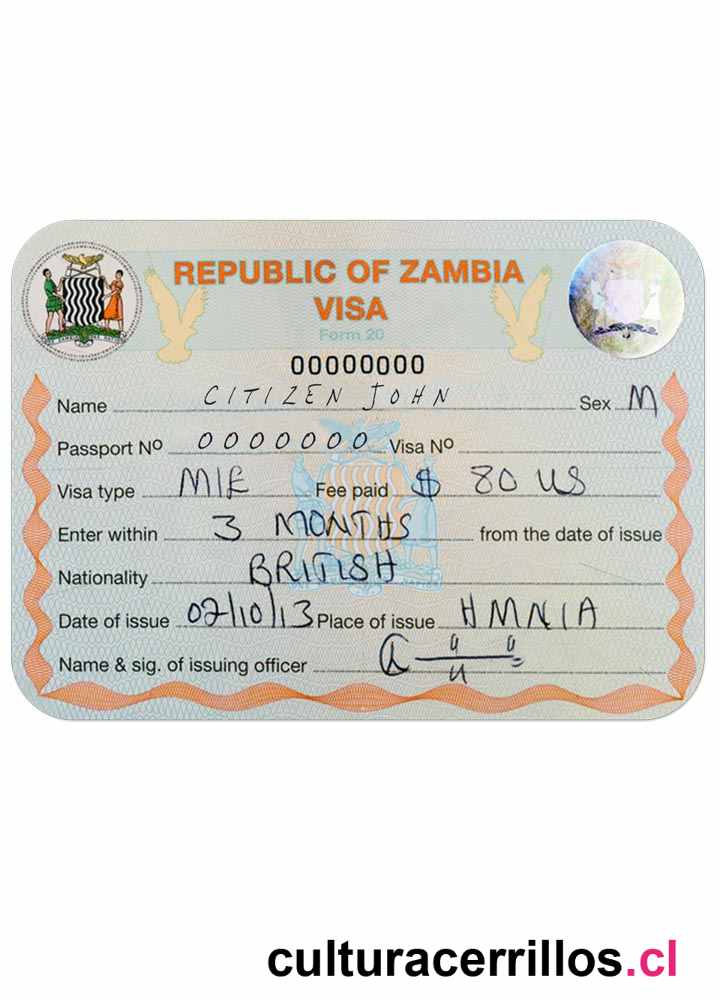 REPUBLIC OF ZAMBIA
VISA
Form 20
00000000
Name CITIZEN JOHN Sex M
Passport Nº 0000000 Visa Nº
Visa type MIE Fee paid $ 80 US
Enter within 3 MONTHS from the date of issue
Nationality BRITISH
Date of issue 02/10/13 Place of issue HMNIA
Name & sig. of issuing officer
culturacerrillos.cl